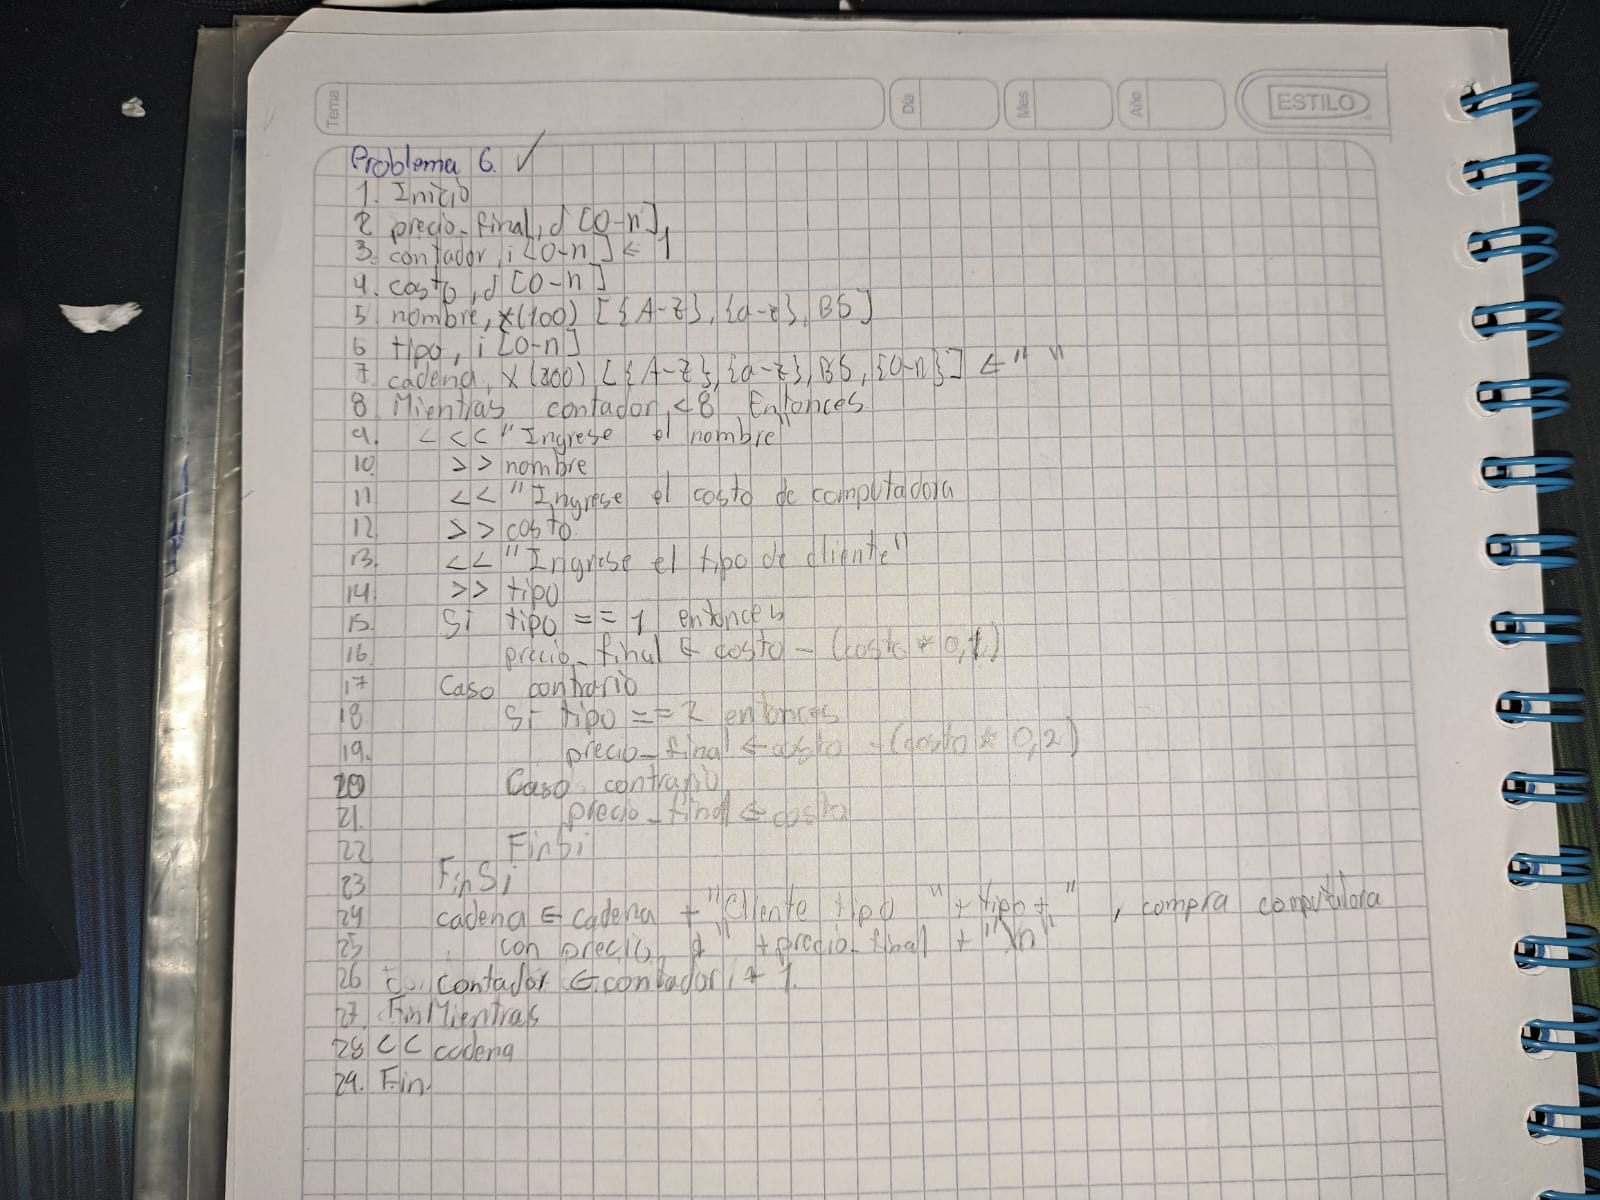 Tema
Dia
Mes
Año
ESTILO
Problema 6. ✓
1. Inicio
2 precio_final, d [0-n]
3. contador, i [0-n] ← 1
4. costo, d [0-n]
5 nombre, x(100) [{A-Z}, {a-z}, BS]
6 tipo, i [0-n]
7 cadena, x(200) [{A-Z}, {a-z}, BS, {0-n}] ← " "
8 Mientras contador < 8 Entonces
9. < << "Ingrese el nombre"
10. >> nombre
11 << "Ingrese el costo de computadora
12 >> costo
13. << "Ingrese el tipo de cliente"
14. >> tipo
15. Si tipo == 1 entonces
16. precio_final ← costo - (costo * 0,1)
17 Caso contrario
18. Si tipo == 2 entonces
19. precio_final ← costo - (costo * 0,2)
20 Caso contrario
21. precio_final ← costo
22 FinSi
23 FinSi
24 cadena ← cadena + "Cliente tipo " + tipo + " , compra computadora
25 con precio $" + precio_final + "\n"
26 contador ← contador + 1.
27. FinMientras
28 << cadena
29. Fin.